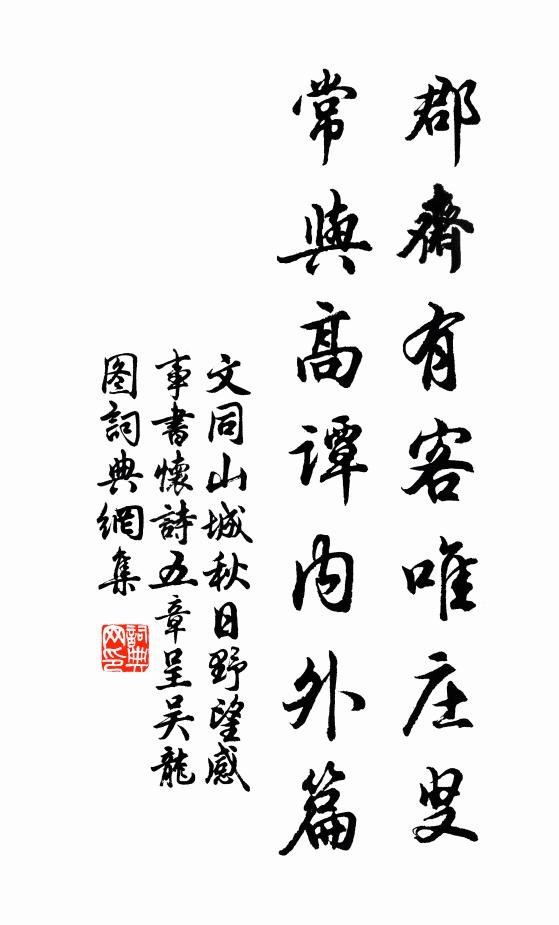 郡齋有客唯庄叟
常與高譚內外篇
文同山城秋日野望感
事書懷詩五章呈吴龍
图詞典網集
詞典网印